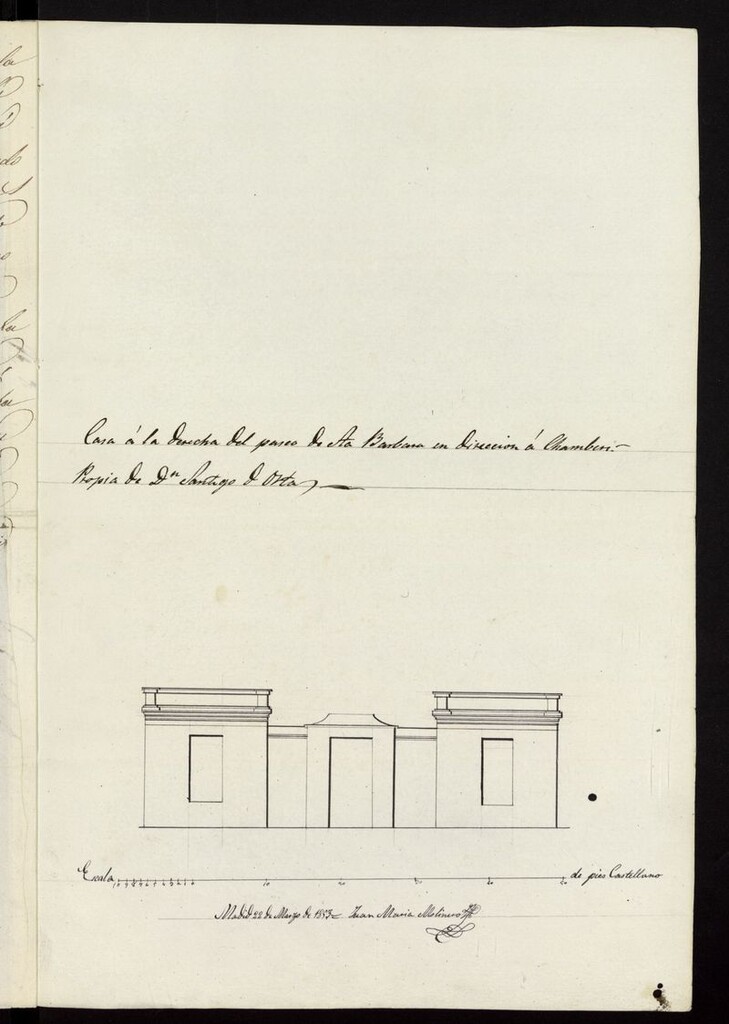 Casa á la derecha del paseo de Sta Barbara en direccion á Chamberi.-
Propia de Dn Santiago d Orta
Escala 10 9 8 7 6 5 4 3 2 1 0 10 20 30 40 50 de pies Castellano
Madrid 22 de Marzo de 1853= Juan Maria Molinero